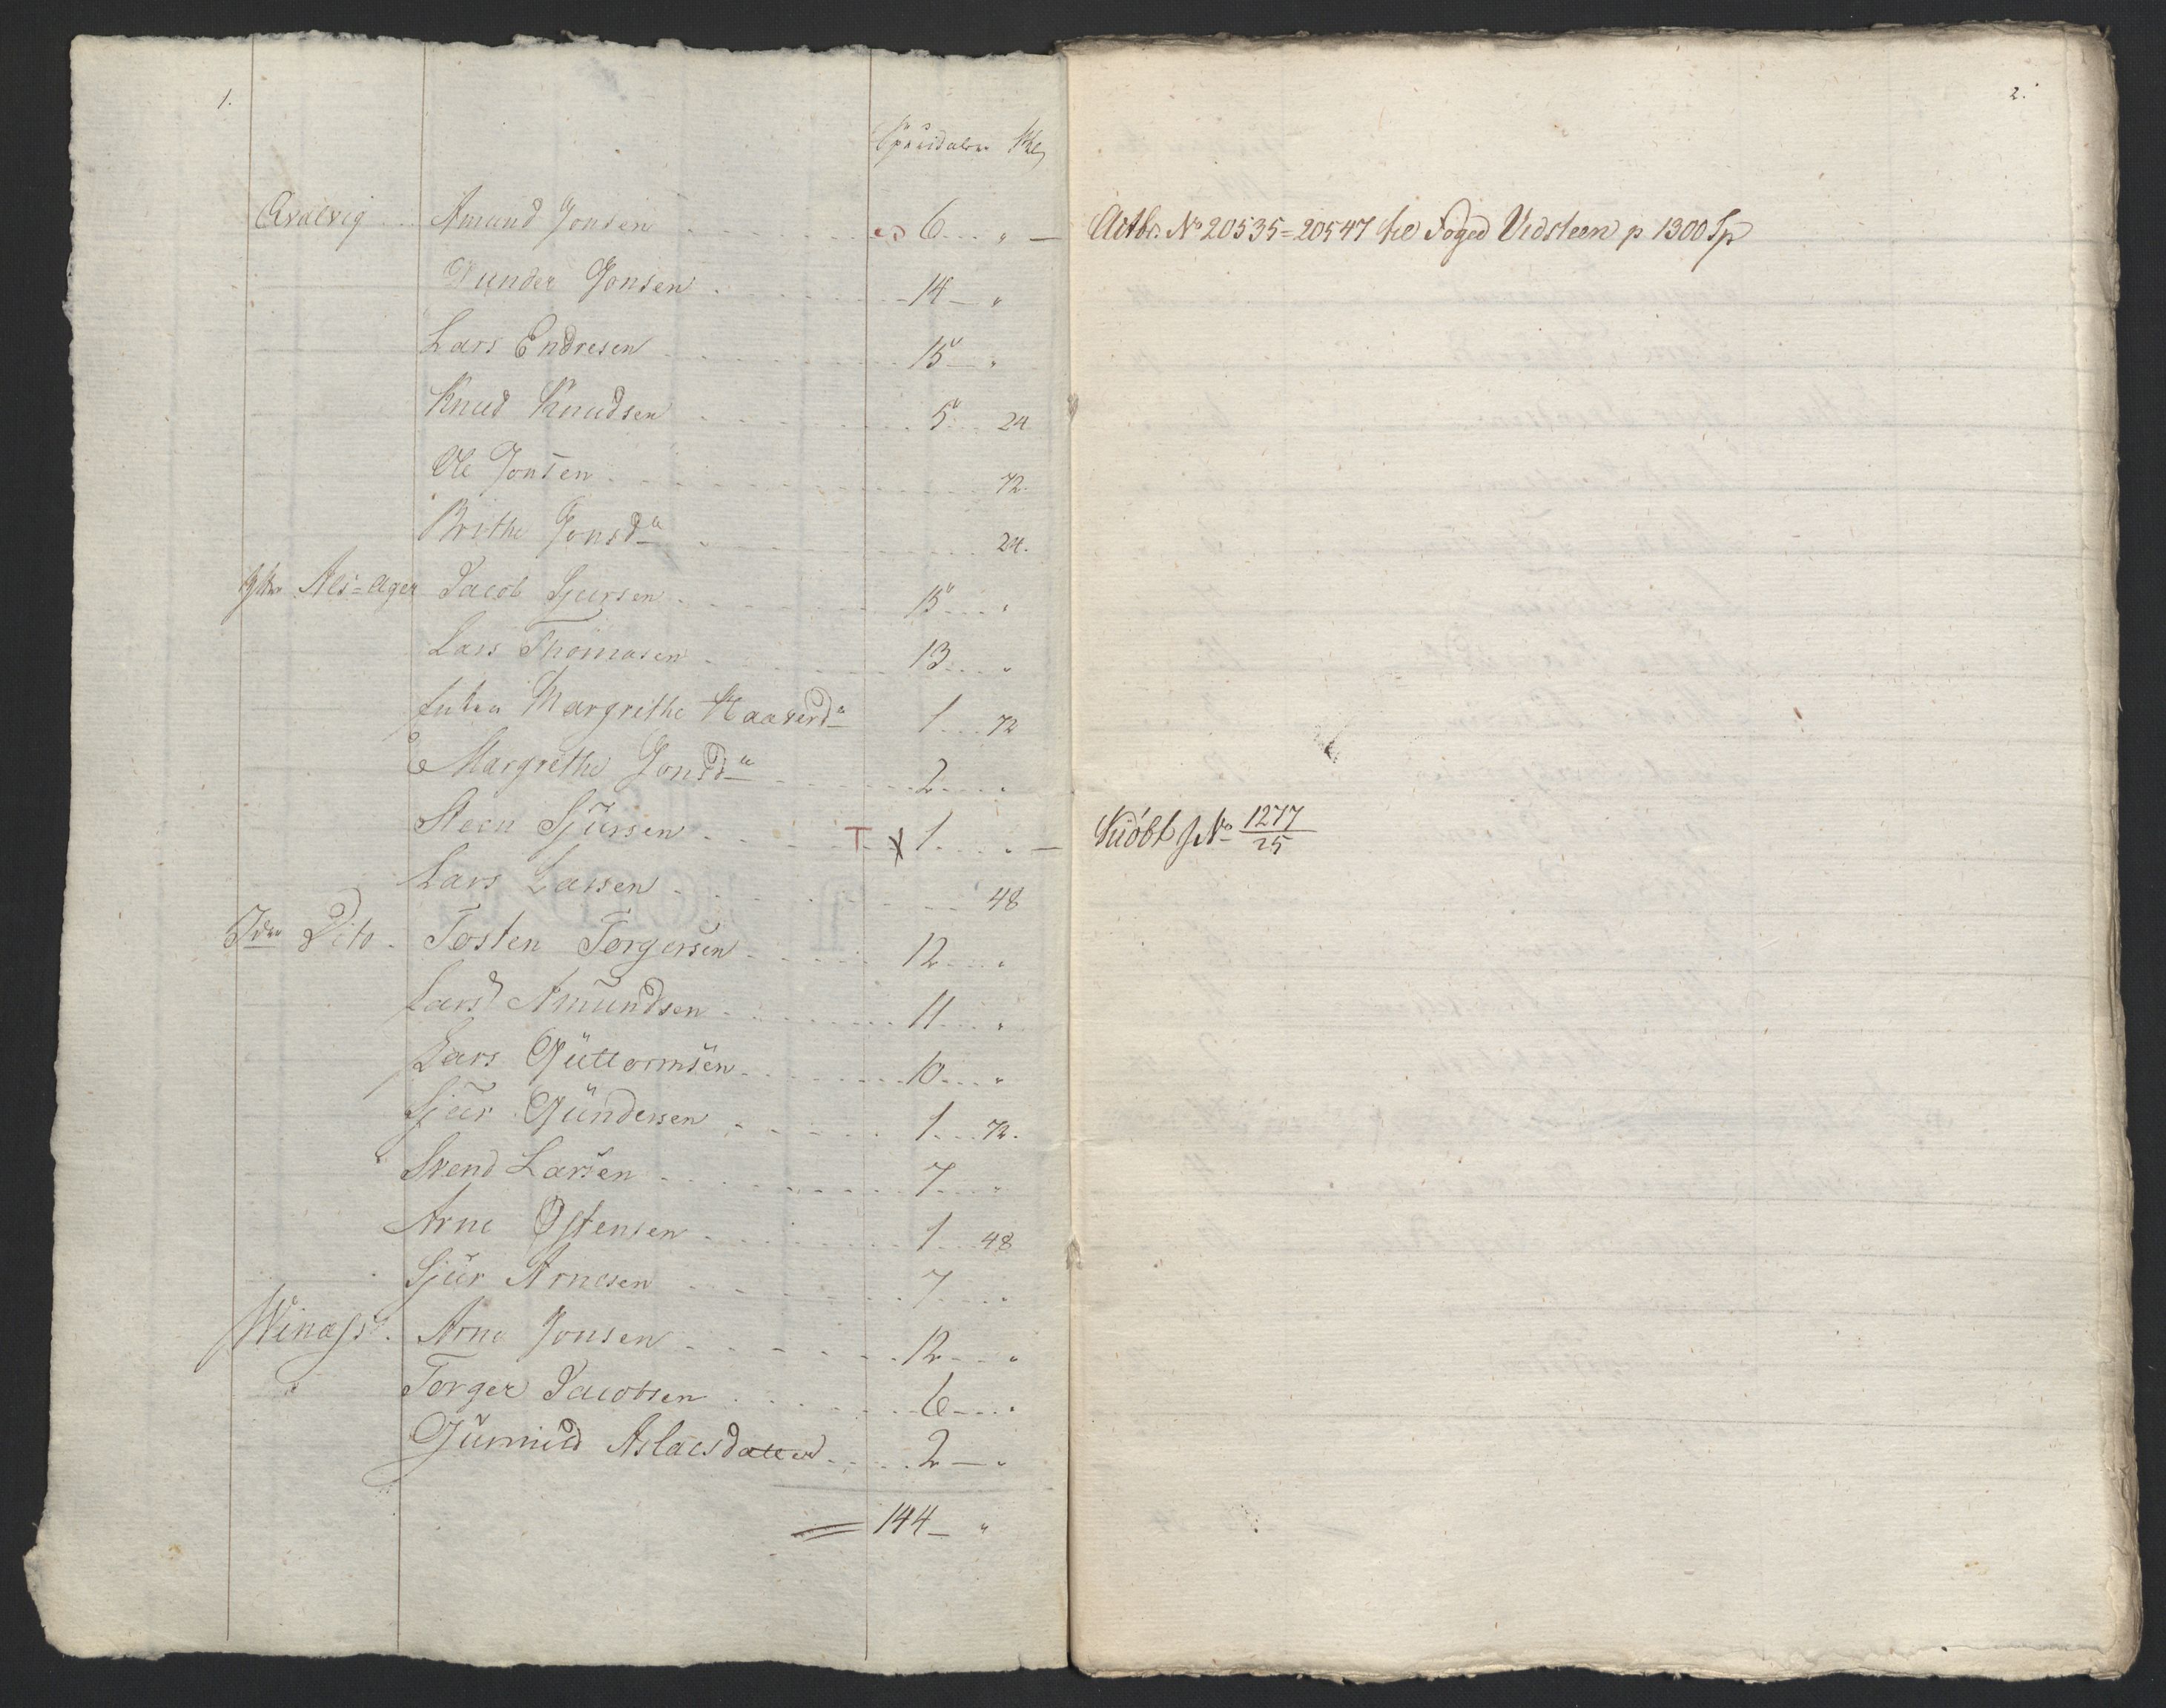 1.
Speciedaler Sk
Qvalvig Amund Jonsen 6 " —
Gunder Jonsen 14 — "
Lars Endresen 15 — "
Knud Knudsen 5 24
Ole Jonsen 72.
Brithe Jonsda 24.
Als=Ager Jacob Sjursen 15 "
Lars Thomasen 13 "
Margrethe Haaverda 1 72
Margrethe Jonsda 2 "
Steen Sjursen T x 1 " —
Lars Larsen 48
Dito Tosten Torgersen 12 "
Lars Amundsen 11 "
Lars Guttormsen 10 "
Sjur Gundersen 1 72.
Svend Larsen 7 "
Arne Ostensen 1 48
Sjur Arnesen 7 "
Arne Jonsen 12 "
Torger Jacobsen 6 "
Gunnild Aslacsdatter 2 — "
144 — "
2.
Actbr. No 20535=20547 Foged Vidsteen p 1300 Sp
Kiöbt J No 1277/25